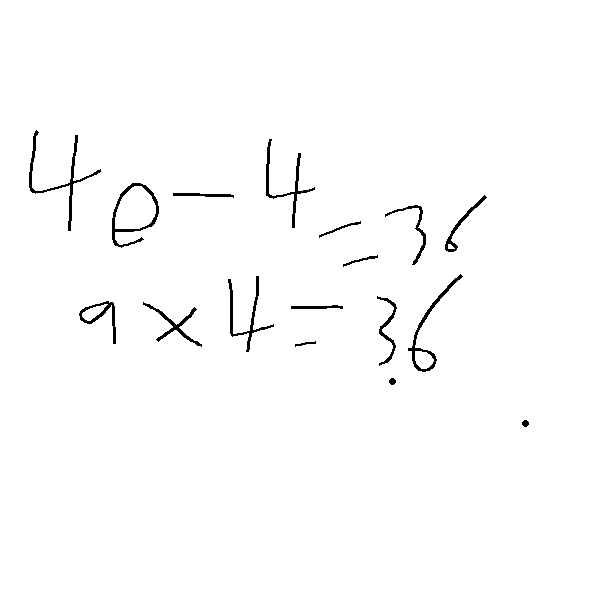 4e-4=36
9x4=36